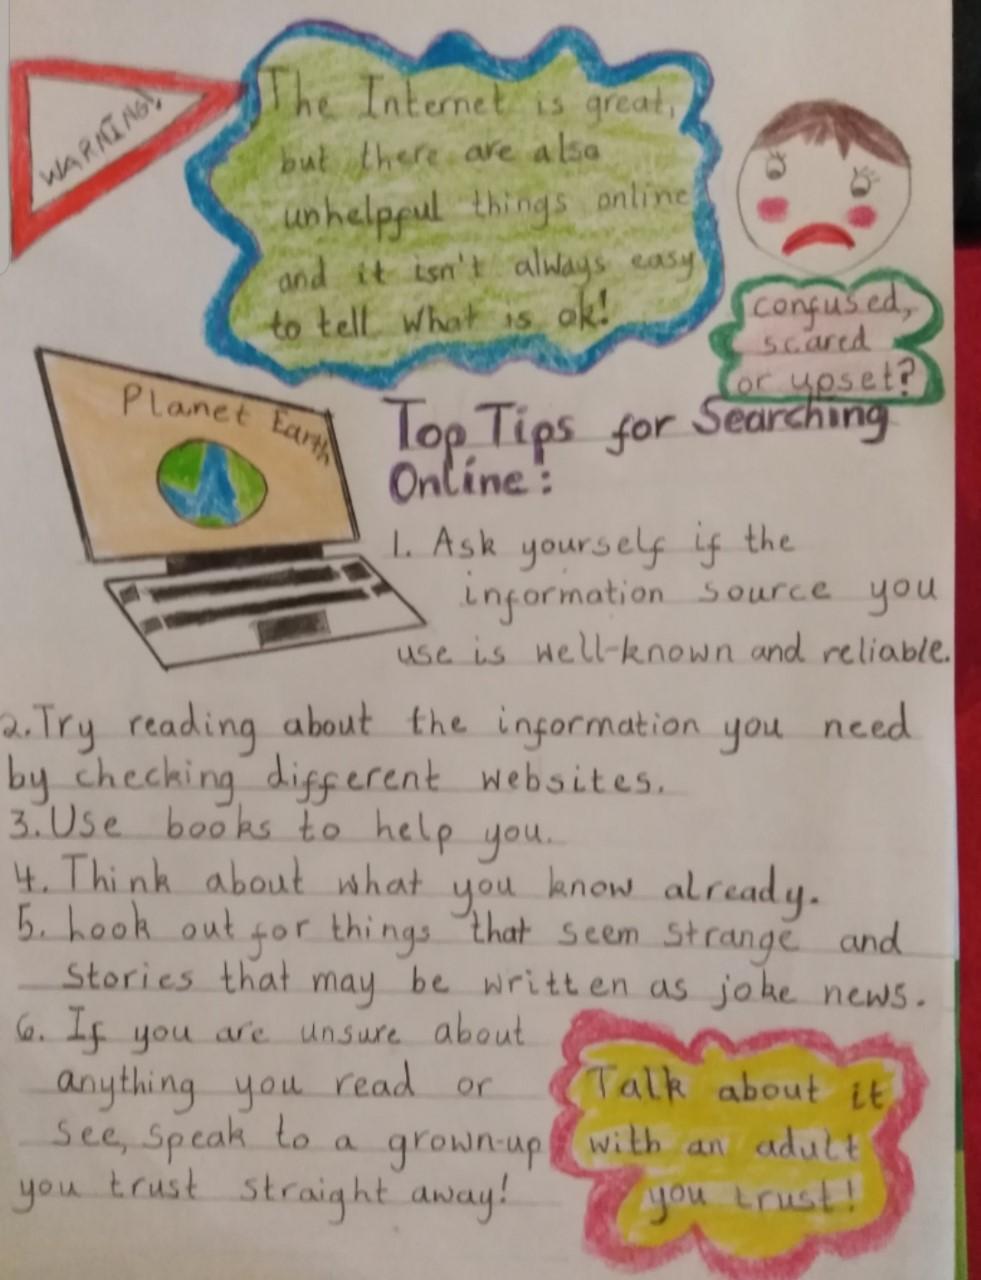 WARNING!
The Internet is great,
but there are also
unhelpful things online
and it isn't always easy
to tell what is ok!
confused,
scared
or upset?
Planet Earth
Top Tips for Searching
Online:
1. Ask yourself if the
information source you
use is well-known and reliable.
2. Try reading about the information you need
by checking different websites.
3. Use books to help you.
4. Think about what you know already.
5. Look out for things that seem strange and
stories that may be written as joke news.
6. If you are unsure about
anything you read or
see, speak to a grown-up
you trust straight away!
Talk about it
with an adult
you trust!